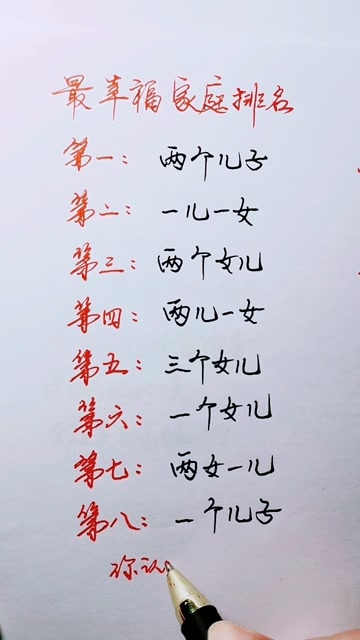 最幸福家庭排名
第一：两个儿子
第二：一儿一女
第三：两个女儿
第四：两儿一女
第五：三个女儿
第六：一个女儿
第七：两女一儿
第八：一个儿子
你认